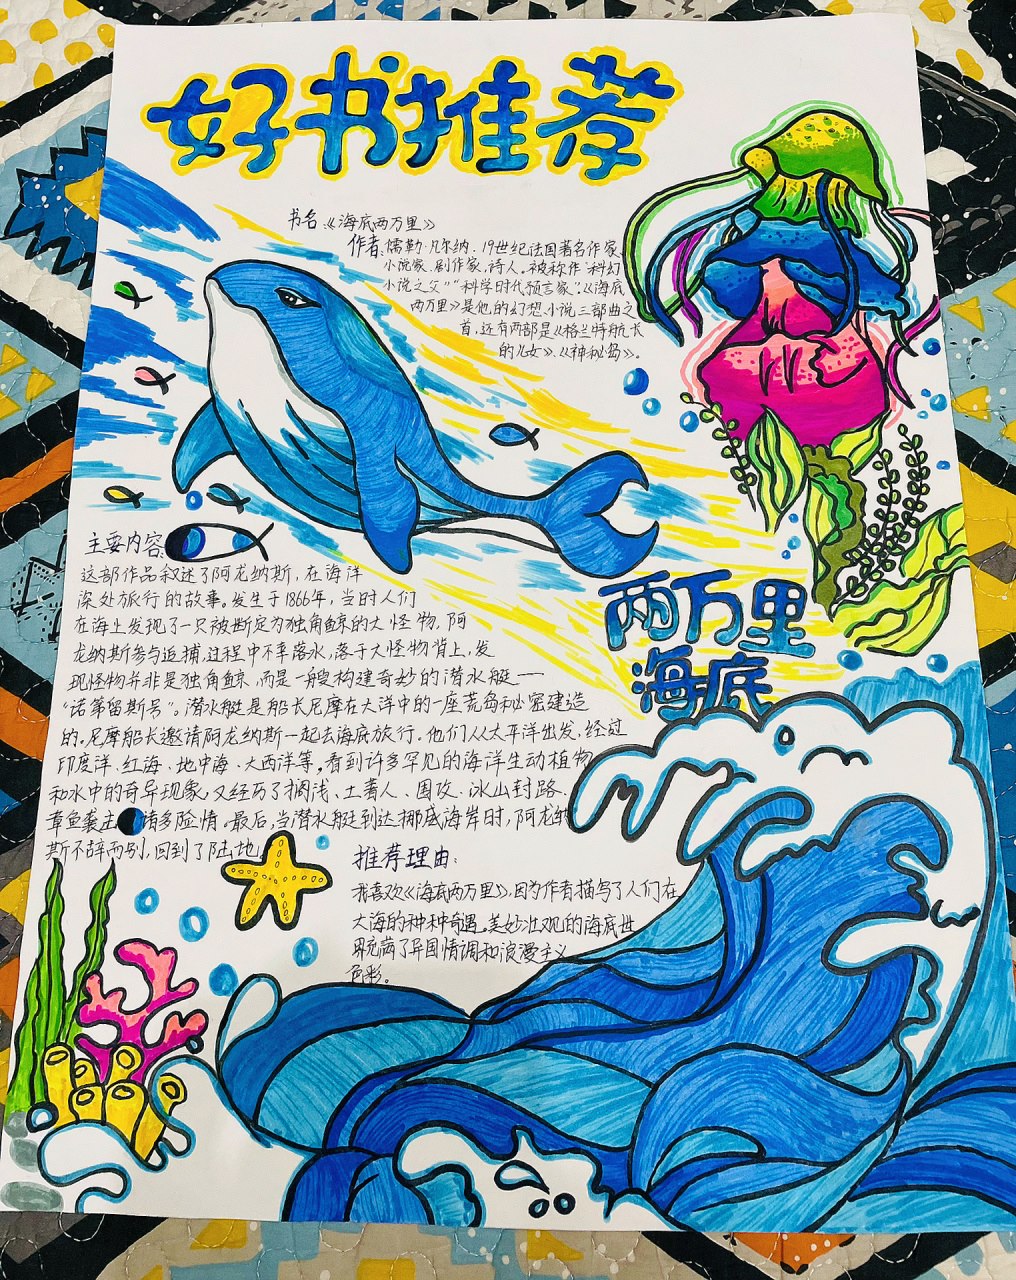 好书推荐
书名:《海底两万里》
作者:儒勒·凡尔纳.19世纪法国著名作家、
小说家、剧作家,诗人,被称作“科幻
小说之父”“科学时代预言家”。《海底
两万里》是他的幻想小说三部曲之
首,还有两部是《格兰特船长
的儿女》、《神秘岛》。
主要内容:
这部作品叙述了阿龙纳斯,在海洋
深处旅行的故事。发生于1866年,当时人们
在海上发现了一只被断定为独角鲸的大怪物,阿
龙纳斯参与追捕,过程中不幸落水,落于大怪物背上,发
现怪物并非是独角鲸,而是一艘构建奇妙的潜水艇——
“诺第留斯号”。潜水艇是船长尼摩在大洋中的一座荒岛秘密建造
的.尼摩船长邀请阿龙纳斯一起去海底旅行.他们从太平洋出发,经过
印度洋、红海、地中海、大西洋等,看到许多罕见的海洋生动植物
和水中的奇异现象,又经历了搁浅、土著人、围攻、冰山封路、
章鱼袭击 诸多险情,最后,当潜水艇到达挪威海岸时,阿龙纳
斯不辞而别,回到了陆地
两万里
海底
推荐理由:
我喜欢《海底两万里》.因为作者描写了人们在
大海的种种奇遇。美妙壮观的海底世
界充满了异国情调和浪漫主义
色彩。